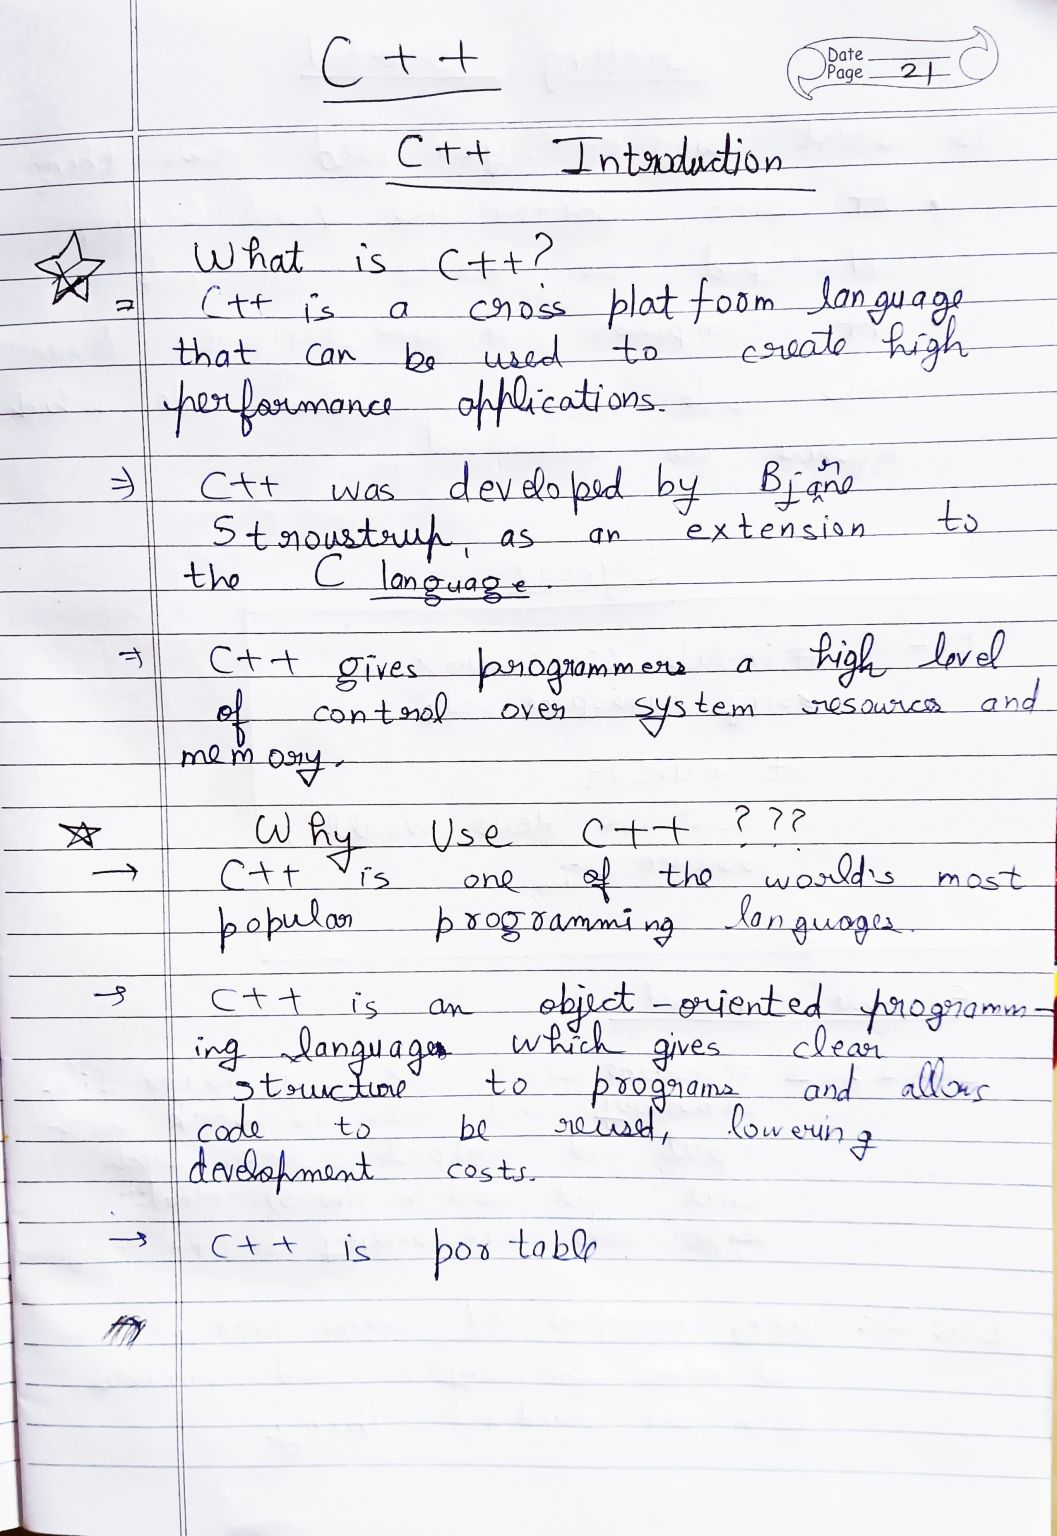 C++
Date
Page 21
C++ Introduction
What is C++?
⇒ C++ is a cross platform language
that can be used to create high
performance applications.
⇒ C++ was developed by Bjarne
Stroustrup, as an extension to
the C language.
⇒ C++ gives programmers a high level
of control over system resources and
memory.
Why Use C++ ???
→ C++ is one of the world's most
popular programming languages.
→ C++ is an object-oriented programm-
ing language which gives clear
structure to programs and allows
code to be reused, lowering
development costs.
→ C++ is portable